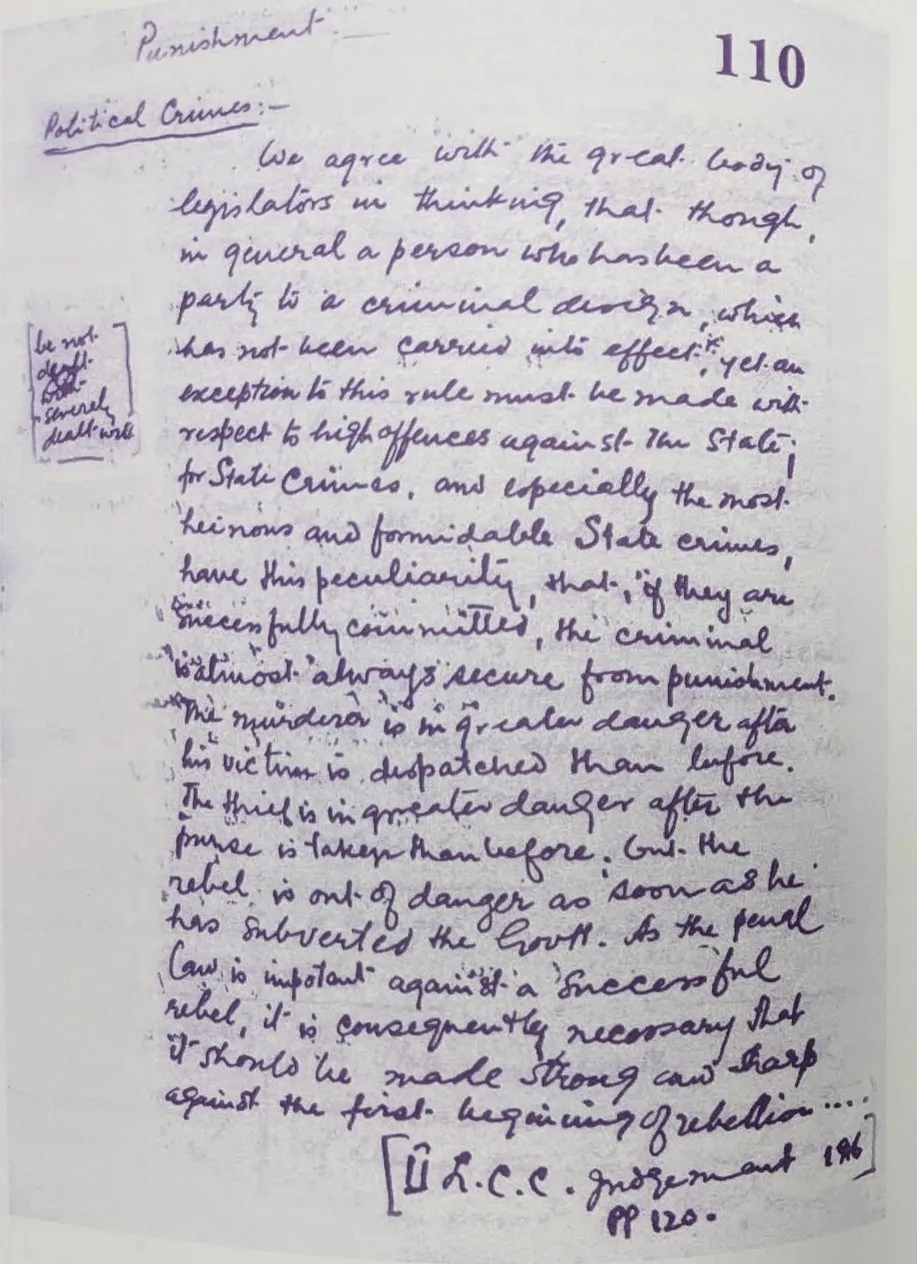 Punishment :—
110
Political Crimes:—
We agree with the great body of
legislators in thinking, that though,
in general a person who has been a
party to a criminal design, which
has not been carried into effect, yet an
be not
dealt
with
severely
dealt with
exception to this rule must be made with
respect to high offences against the State;
for State Crimes, and especially the most
heinous and formidable State crimes,
have this peculiarity, that, if they are
successfully committed, the criminal
is almost always secure from punishment.
The murderer is in greater danger after
his victim is dispatched than before.
The thief is in greater danger after the
purse is taken than before. but the
rebel is out of danger as soon as he
has subverted the Govtt. As the penal
law is impotant against a successful
rebel, it is consequently necessary that
it should be made strong and sharp
against the first begining of rebellion ....
[II L.C.C. Judgement 1916]
PP 120.